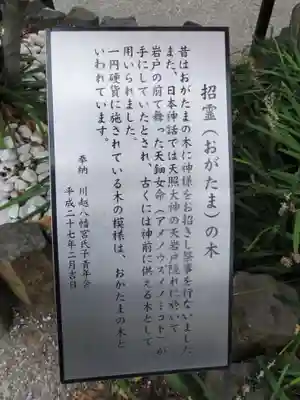 招霊（おがたま）の木
昔はおがたまの木に神様をお招きし祭事を行ないました
また、日本神話では天照大神の天岩戸隠れに於いて
岩戸の前で舞った天鈿女命（アメノウズメノミコト）が
手にしていたとされ、古くには神前に供える木として
用いられました。
一円硬貨に施されている木の模様は、おがたまの木と
いわれています。
奉納　川越八幡宮氏子青年会
平成二十七年二月吉日